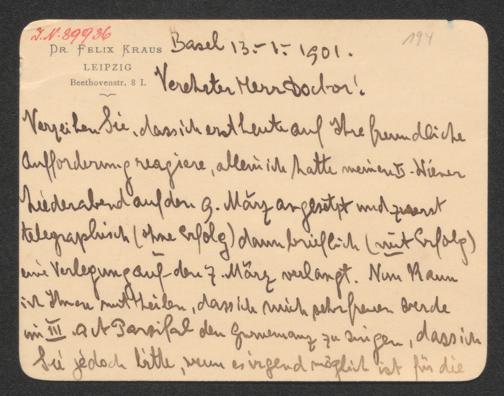 J.N. 89936
194
DR. FELIX KRAUS
LEIPZIG
Beethovenstr. 8 I.
Basel 13.-I.-1901.
Verehrter Herr Doctor!
Verzeihen Sie, dass ich erst heute auf Ihre freundliche
Aufforderung reagiere, allein ich hatte meinen II. Wiener
Liederabend auf den 9. März angesetzt und zuerst
telegraphisch (ohne Erfolg) dann brieflich (mit Erfolg)
eine Verlegung auf den 7. März verlangt. Nun kann
ich Ihnen mittheilen, dass ich mich sehr freuen werde
im III. Act Parsifal den Gurnemanz zu singen, dass ich
Sie jedoch bitte, wenn es irgend möglich ist für die